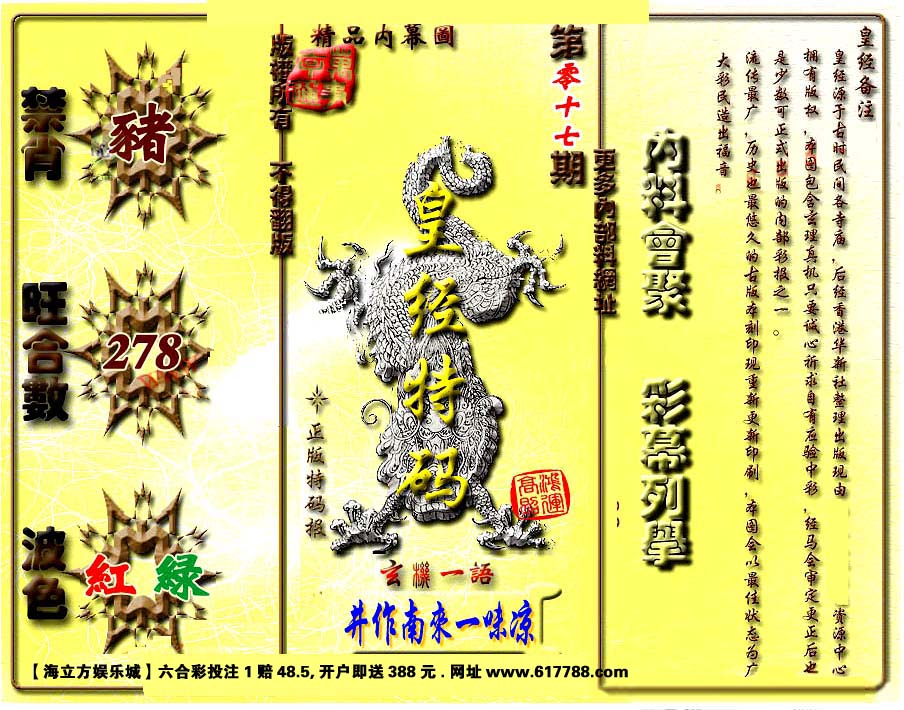 禁肖
豬
旺合數
278
波色
紅 綠
精品内幕圖
版權所有 不得翻版
第零十七期
更多内部料網址
皇经特码
正版特码报
鴻運高照
玄機一語
井作南來一味凉
内料會聚 彩幕列舉
皇经备注
皇经源于古时民间各寺庙，后经香港华新社整理出版现由 资源中心
拥有版权，本图包含玄理真机只要诚心祈求自有应验中彩，经马会审定更正后也
是少数可正式出版的内部彩报之一。
流传最广，历史也最悠久的古版本刻印现重新更新印刷，本图会以最佳状态为广
大彩民造出福音
【海立方娱乐城】六合彩投注1赔48.5,开户即送388元.网址www.617788.com